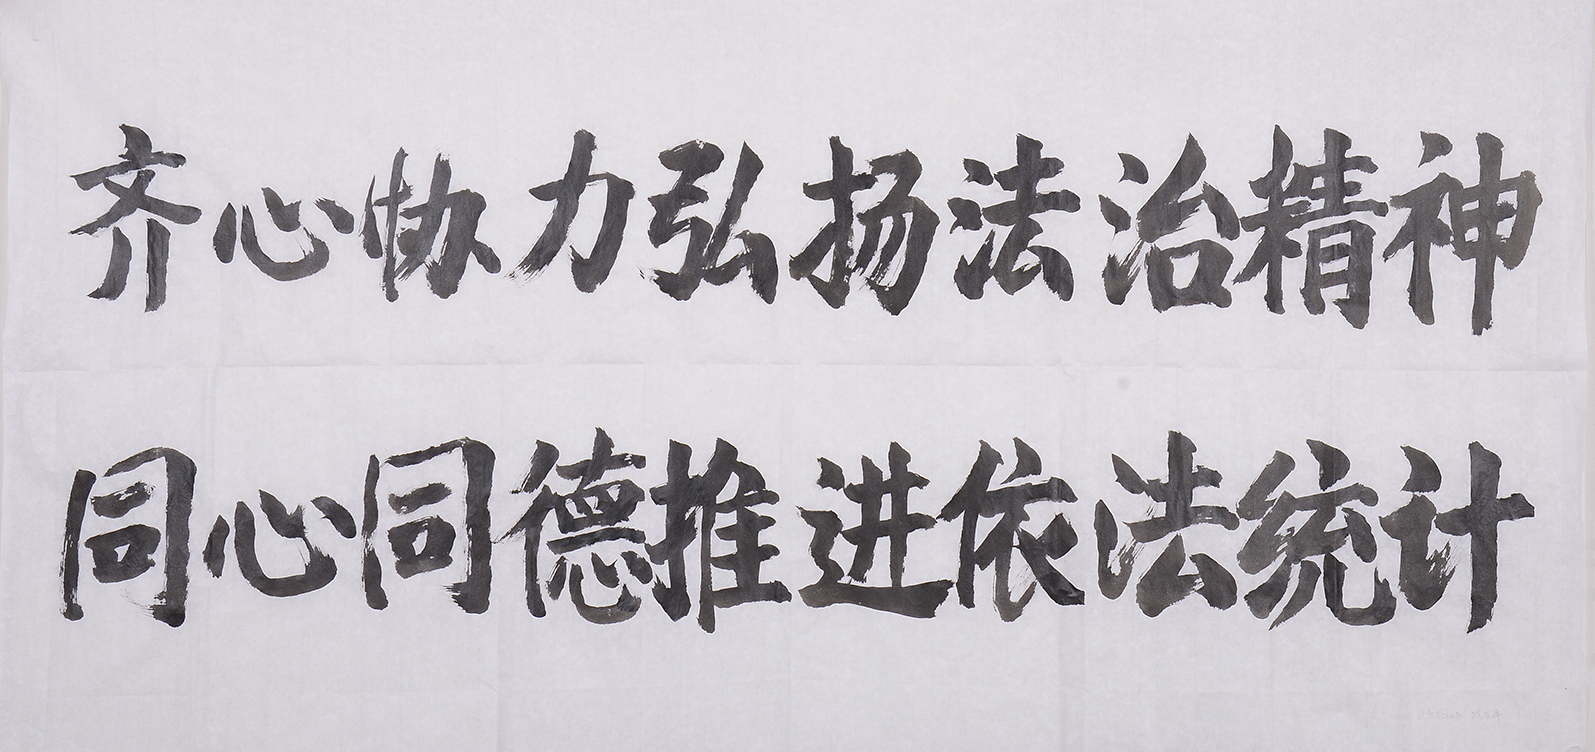 齐心协力弘扬法治精神
同心同德推进依法统计